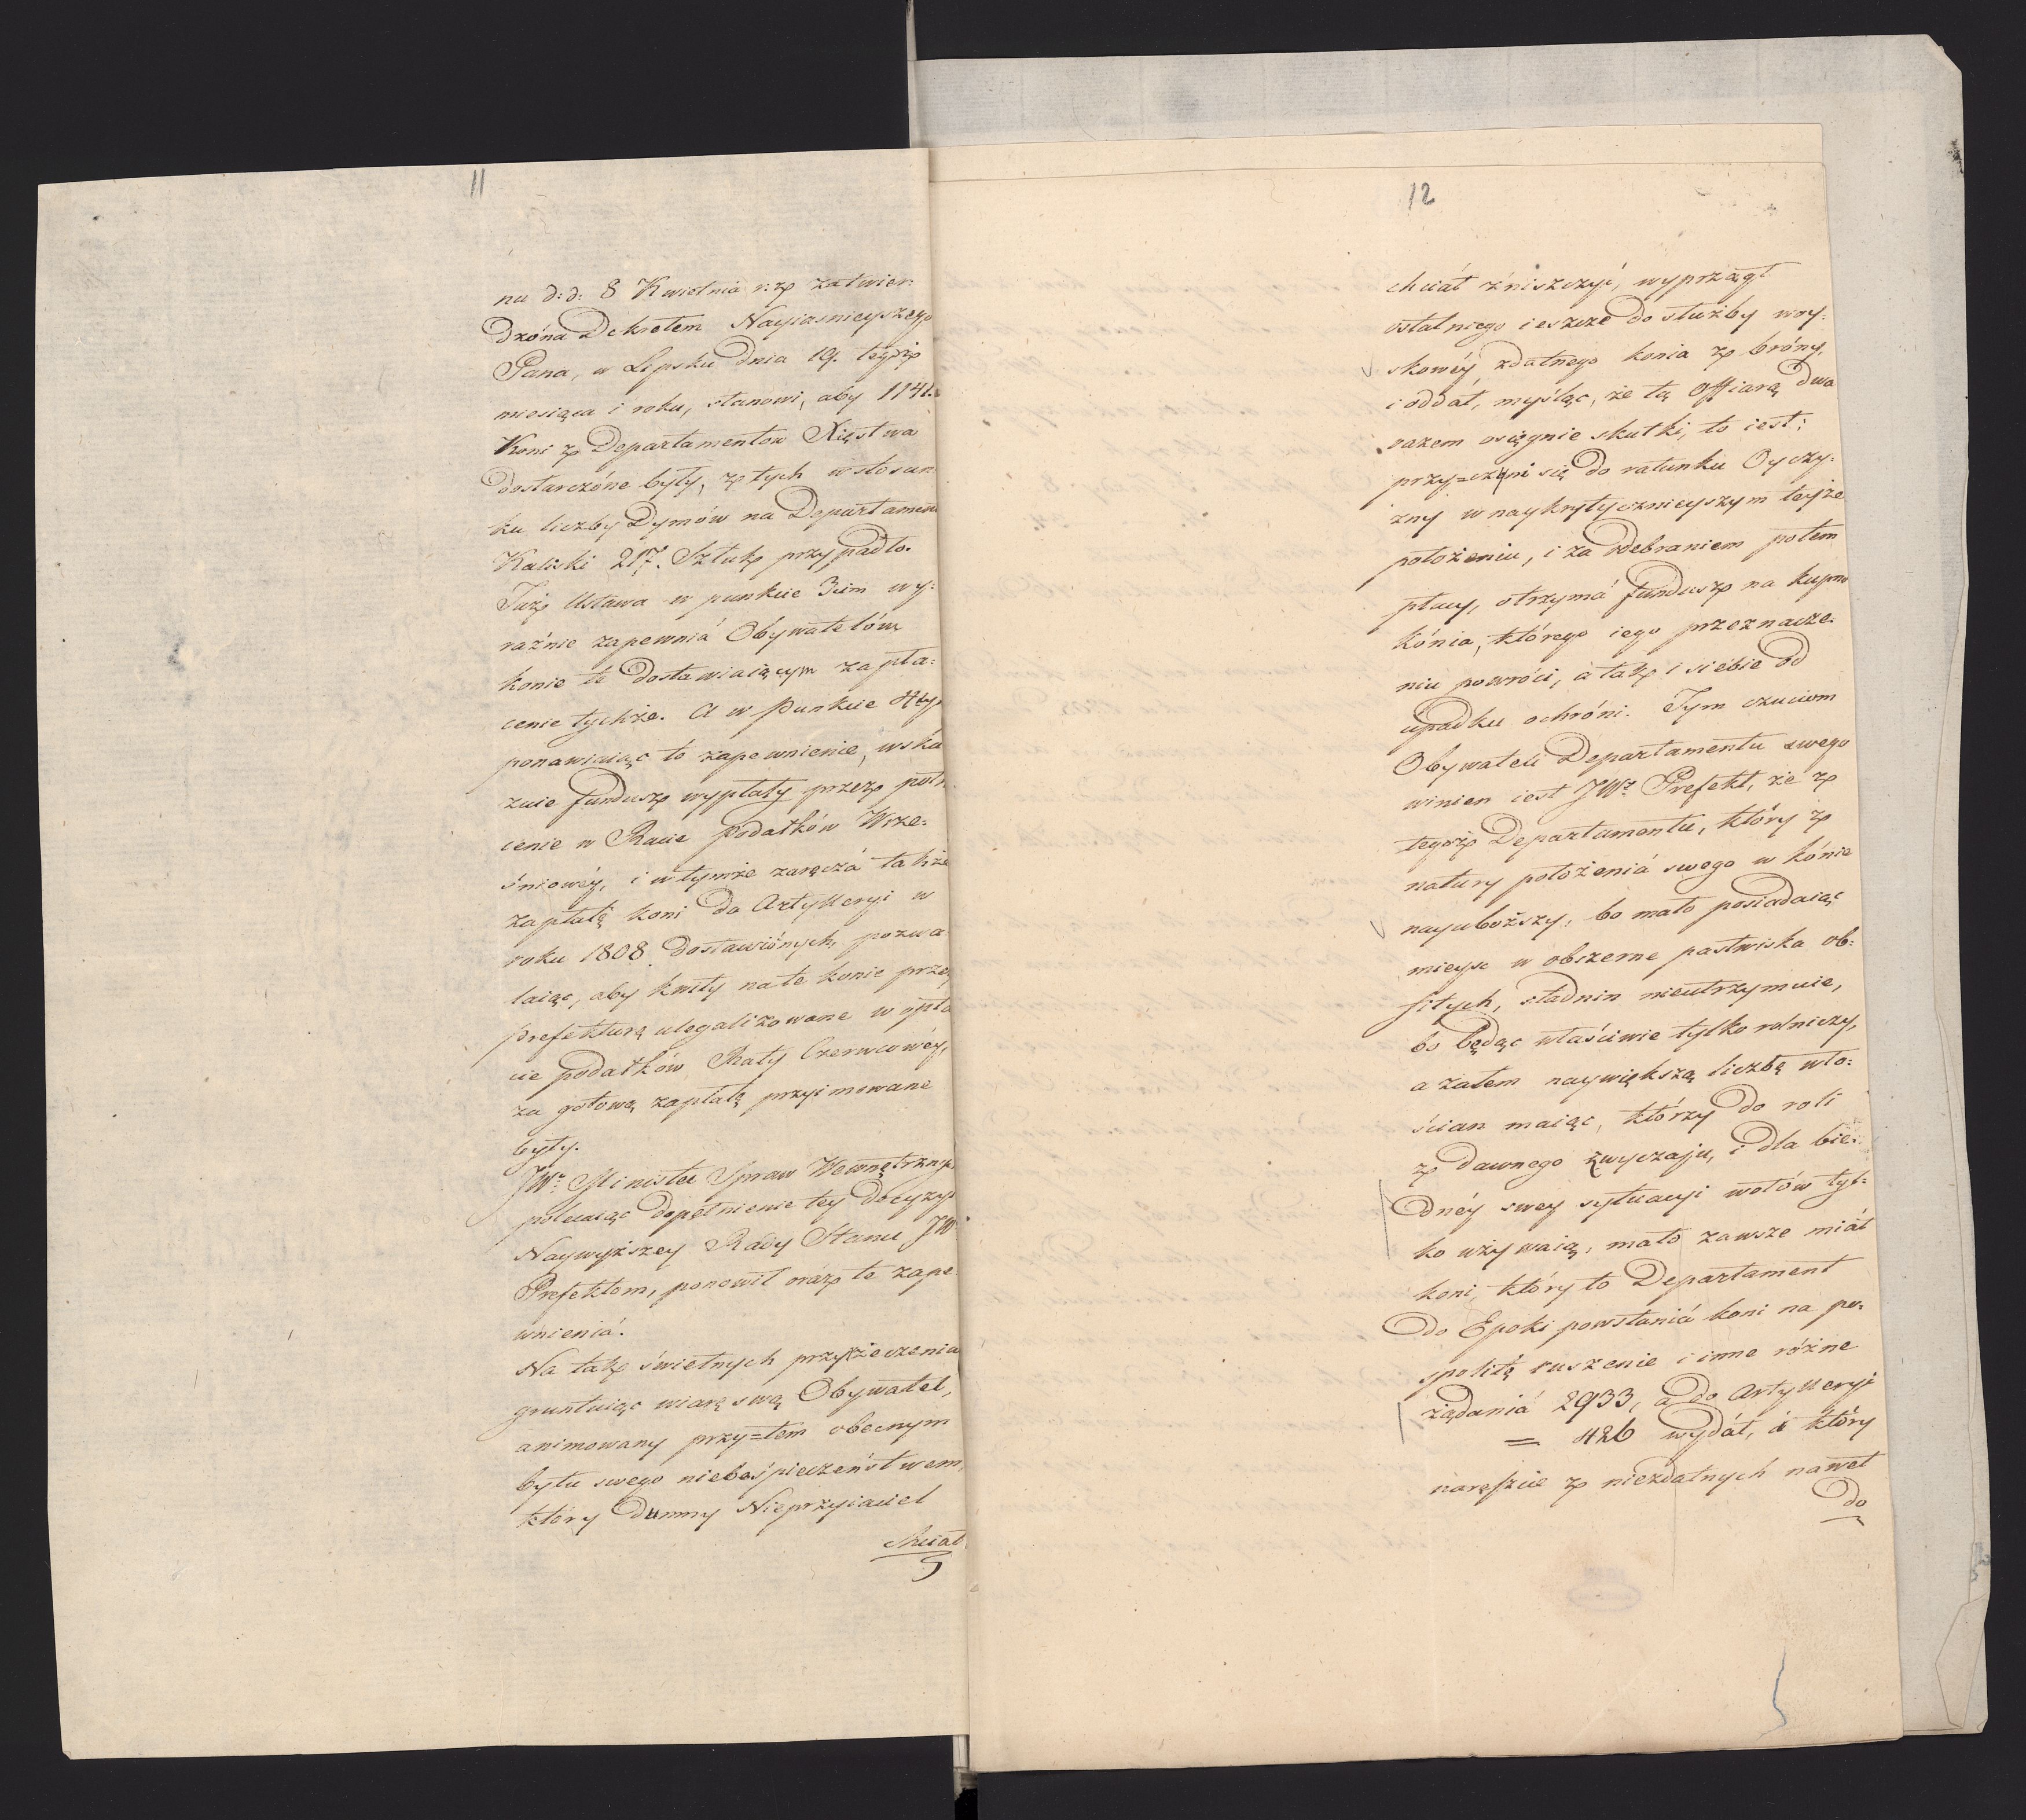 11
na d: d: 8 Kwietnia r: z zatwier:
dzóna Dekretem Nayiasnieyszego
Pana, w Lipsku dnia 19. tegoż
miesiąca i roku, stanowi, aby 1141.
Koni z Departamentow Xięstwa
dostarczóne były, z tych w stosun
ku liczby Dymów na Departament
Kaliski 217. Sztuk przypadło.
Taż Ustawa w punkcie 3cim wy:
raźnie zapewniá Obywatelów
konie te dostawiaiącym zapła:
cenie tychże. A w Punkcie 4tym
ponawiaiąc to zapewnienie, wska
zuie fundusz wypłaty przez potrą
cenie w Racie podatków Wrze:
śniowéy, i w tymże zaręczá także
zapłatę koni do Artylleryi w
roku 1808. dostawiónych, pozwa
laiąc, aby kwity na te konie przez
Prefekturę ulegalizowane w opła
cie podatków Raty Czerwcowéy,
za gotową zapłatę przyimowane
były.
JWż Minister Spraw Wewnętrznych
polecaiąc dopełnienie tey decyzyi
Naywyższey Rady Stanu JW
Prefektom, ponowił oraz te zape
wnieniá.
Na tak świetnych przyrzeczenia
gruntuiąc wiarę swą Obywatel,
animowany przy=tem obecnym
bytu swego niebeśpieczeństwem,
który dumny Nieprzyiaciel
chciał
12
chciáł zniszczyć, wyprzągł
ostatniego ieszcze do służby woy:
skowéy zdatnego konia z bróny,
i oddáł, myśląc, że tą Offiarą dwa
razem osięgnie skutki, to iest:
przy=czyni się do ratunku Oyczy:
zny w naykrytycznieyszym teyże
położeniu, i za odebraniem potem
płacy, otrzymá fundusz na kupno
kónia, którego iego przeznacze:
niu powróci, a tak i siebie od
upadku ochróni. Tym czuciom
Obywateli Departamentu swego
winien iest JWż Prefekt, że z
tegoż Departamentu, który z
natury położeniá swego w kónie
nayuboższy, bo mało posiadaiąc
mieysc w obszerne pastwiska ob:
fitych, stadnin nieutrzymuie,
ós będąc właściwie tylko rolniczy,
a zatem naywiększą liczbę wło:
ścian maiąc, którzy do roli
z dawnego zwyczaju, i dla bie:
dnéy swey sytuacyi wołów tyl:
ko używaią, mało zawsze miáł
koni, który to Departament
do Epoki powstaniá koni na po:
spolite ruszenie i inne różne
żądaniá 2933, a do Artylleryi
= 426 wydáł, á który
nareszcie z niezdatnych nawet
do